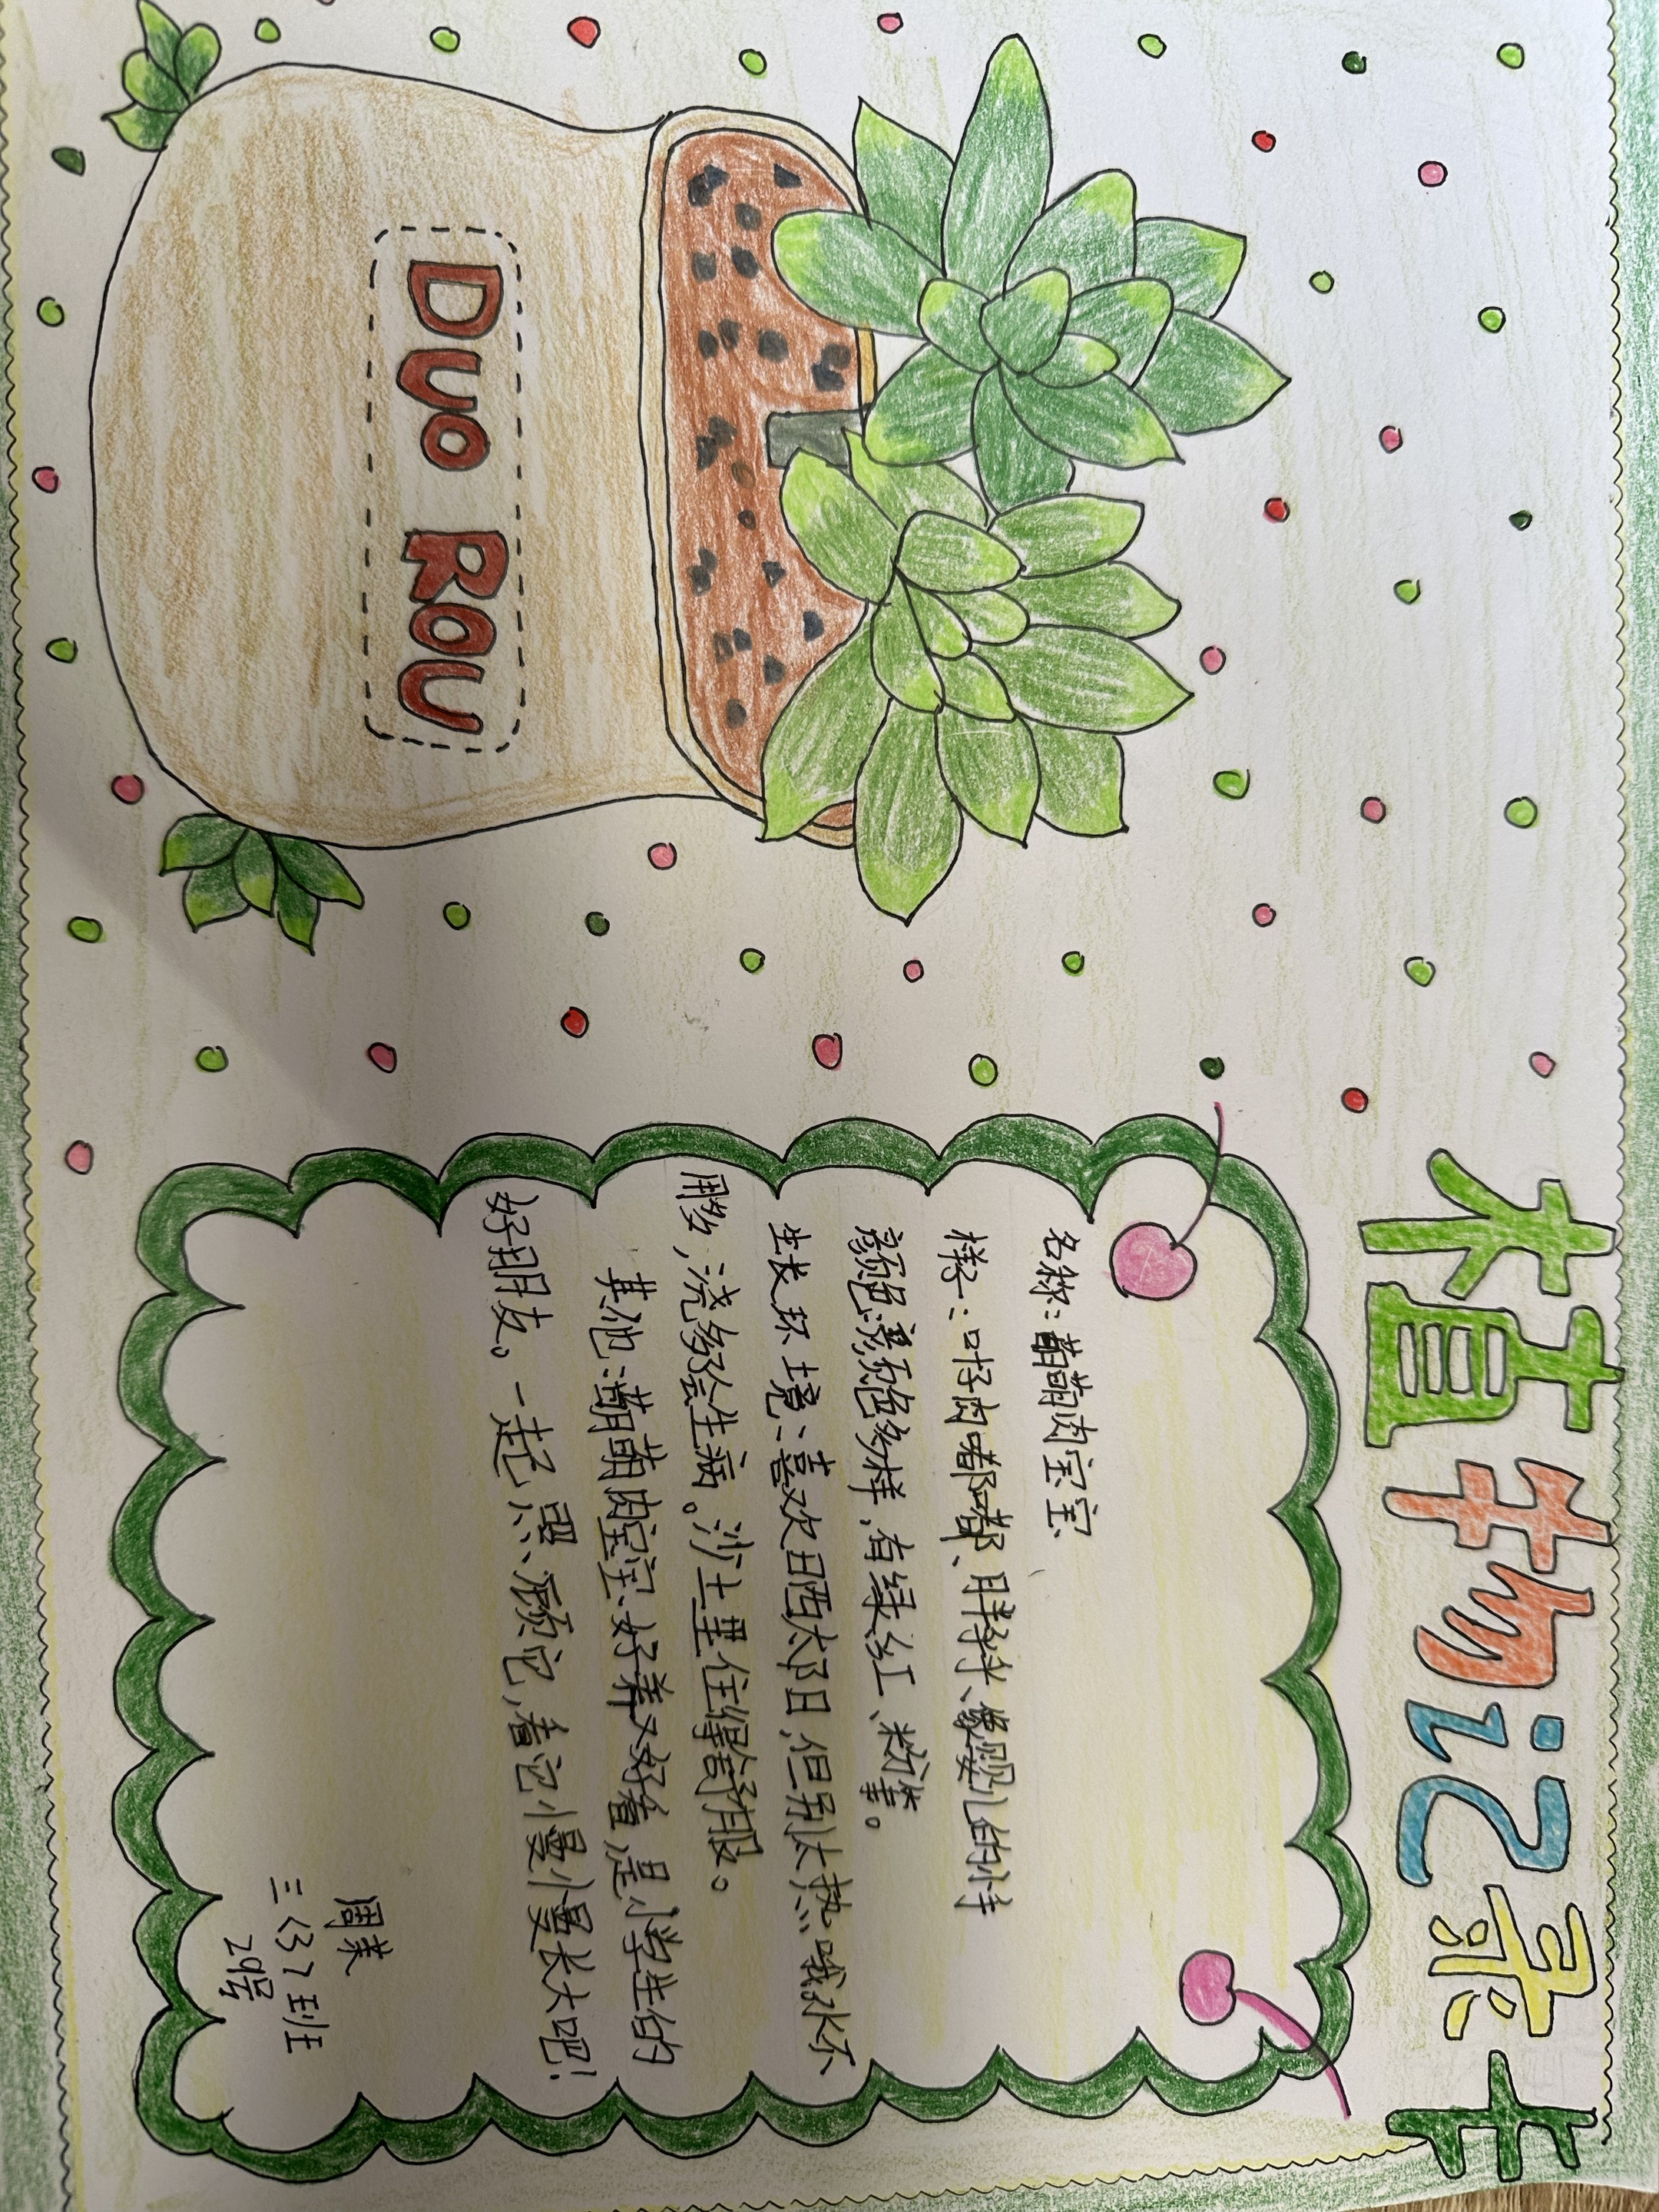 植物记录卡
Duo Rou
名称：萌萌肉宝宝
样子：叶子肉嘟嘟、胖乎乎、像婴儿的小手
颜色：颜色多样，有绿、红、粉等。
生长环境：喜欢晒太阳，但别太热哦，水不
用多，浇多会生病。沙土里住得舒服。
其他：萌萌肉宝宝好养又好看，是小学生的
好朋友。一起照顾它，看它慢慢长大吧！
周茉
三〈3〉班
29号